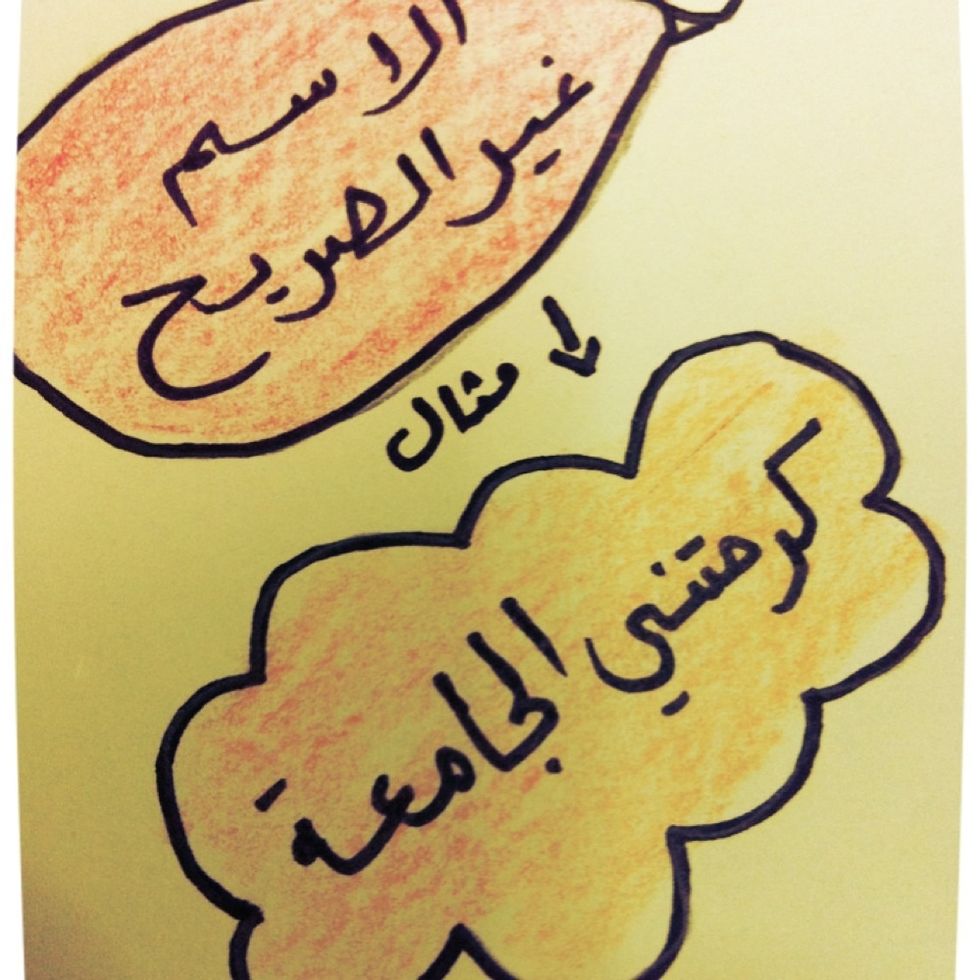 الاسم
غير الصريح
مثال
كرمتني
الجامعة